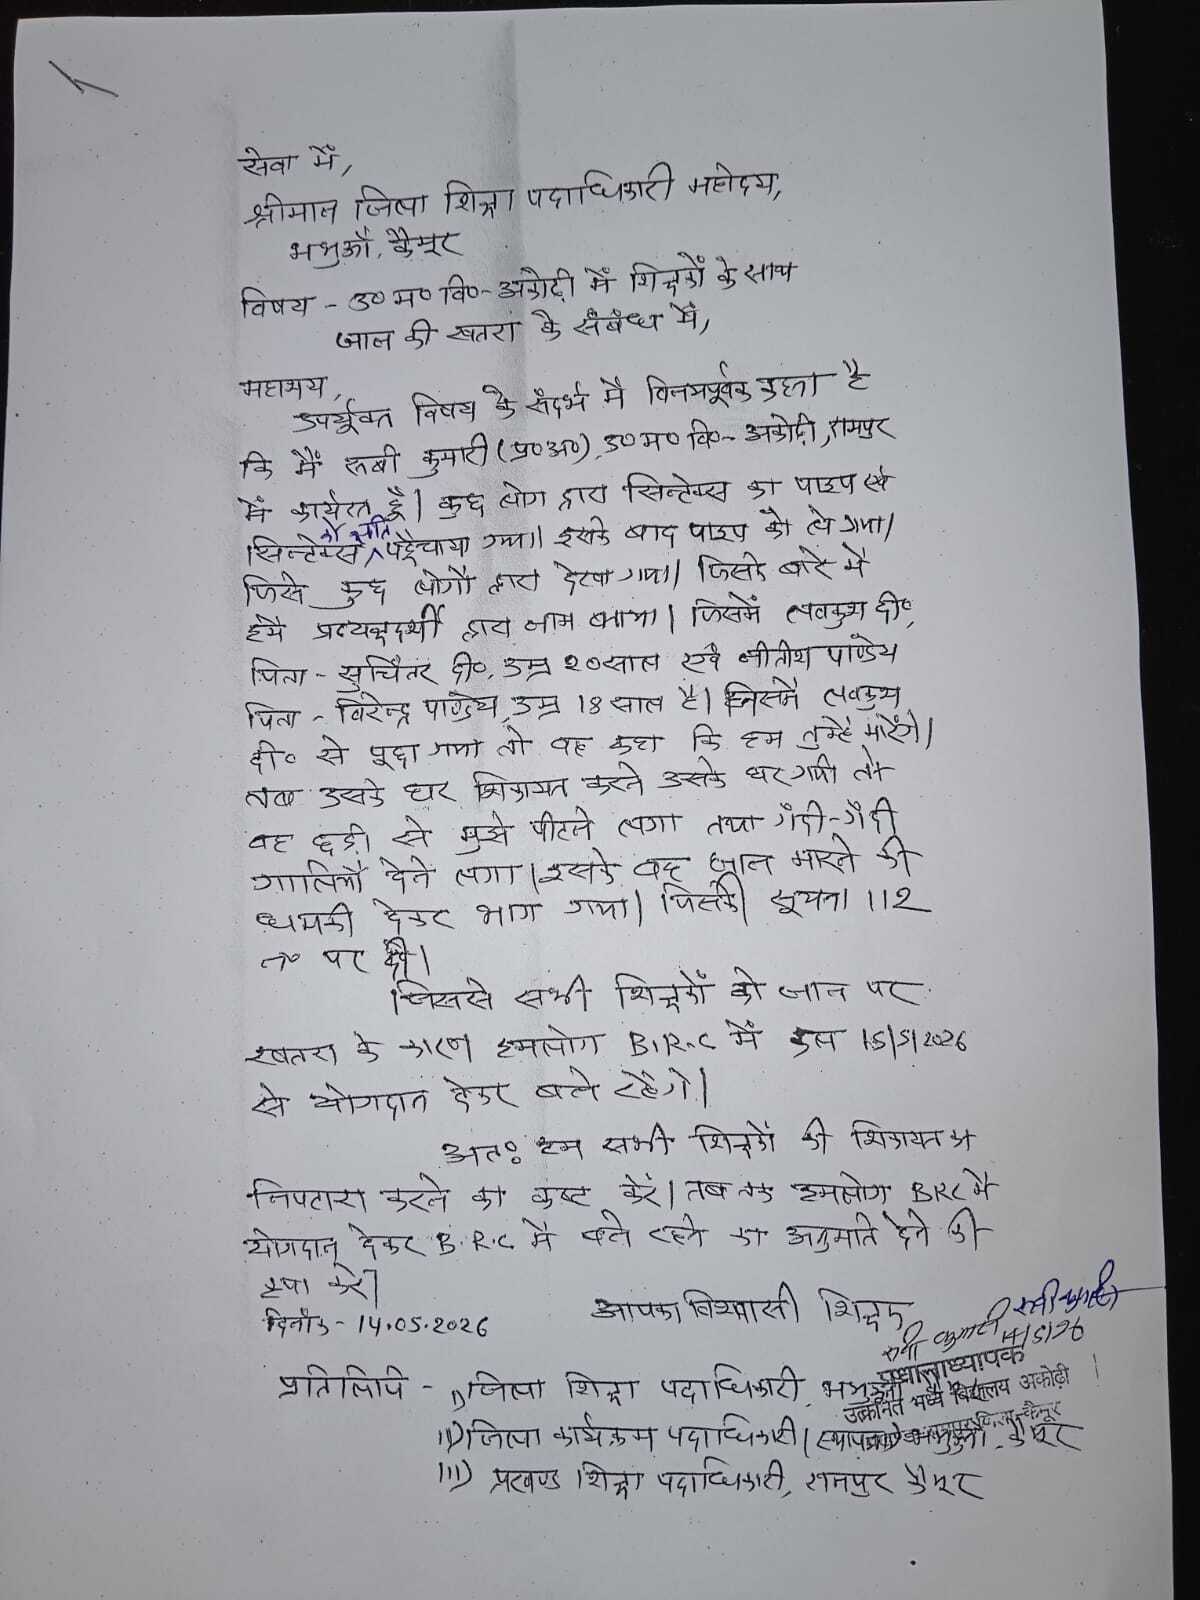 सेवा में,
श्रीमान जिला शिक्षा पदाधिकारी महोदय,
भभुआँ, कैमूर
विषय - उ० म० वि०- अकोढ़ी में शिक्षकों के साथ
जान की खतरा के संबंध में,
महाशय,
उपर्युक्त विषय के संदर्भ में विनयपूर्वक कहना है
कि मैं रूबी कुमारी (प्र०अ०), उ० म० वि०- अकोढ़ी, रामपुर
में कार्यरत हूँ। कुछ लोग द्वारा सिन्टेक्स का पाइप एवं
सिन्टेक्स को क्षति पहुँचाया गया। इसके बाद पाइप को ले गया।
जिसे कुछ लोगों द्वारा देखा गया। जिसके बारे में
हमें प्रत्यक्षदर्शी द्वारा नाम बताया। जिसमें लवकुश दी०,
पिता - सुचितर दी०, उम्र २० साल एवं नीतीश पाण्डेय
पिता - विरेन्द्र पाण्डेय, उम्र 18 साल है। जिसमें लवकुश
दी० से पूछा गया तो वह कहा कि हम तुम्हें मारेंगे।
तब उसके घर शिकायत करने उसके घर गयी तो
वह छड़ी से मुझे पीटने लगा तथा गँदी-गँदी
गालियाँ देने लगा। इसके बाद जान मारने की
धमकी देकर भाग गया। जिसकी सूचना 112
न० पर दी।
जिससे सभी शिक्षकों को जान पर
खतरा के कारण हमलोग B.R.C में कल 15/5/2026
से योगदान देकर बने रहेंगे।
अतः हम सभी शिक्षकों की शिकायत का
निपटारा करने का कष्ट करें। तब तक हमलोग BRC में
योगदान देकर B.R.C में बने रहने का अनुमति देने की
कृपा करें।
दिनाँक - 14.05.2026 आपका विश्वासी शिक्षक
रूबी कुमारी
14/5/26
प्रधानाध्यापक
उत्क्रमित मध्य विद्यालय अकोढ़ी
प्रतिलिपि - i) जिला शिक्षा पदाधिकारी, भभुआँ
ii) जिला कार्यक्रम पदाधिकारी (स्थापना) भभुआँ, कैमूर
iii) प्रखण्ड शिक्षा पदाधिकारी, रामपुर कैमूर